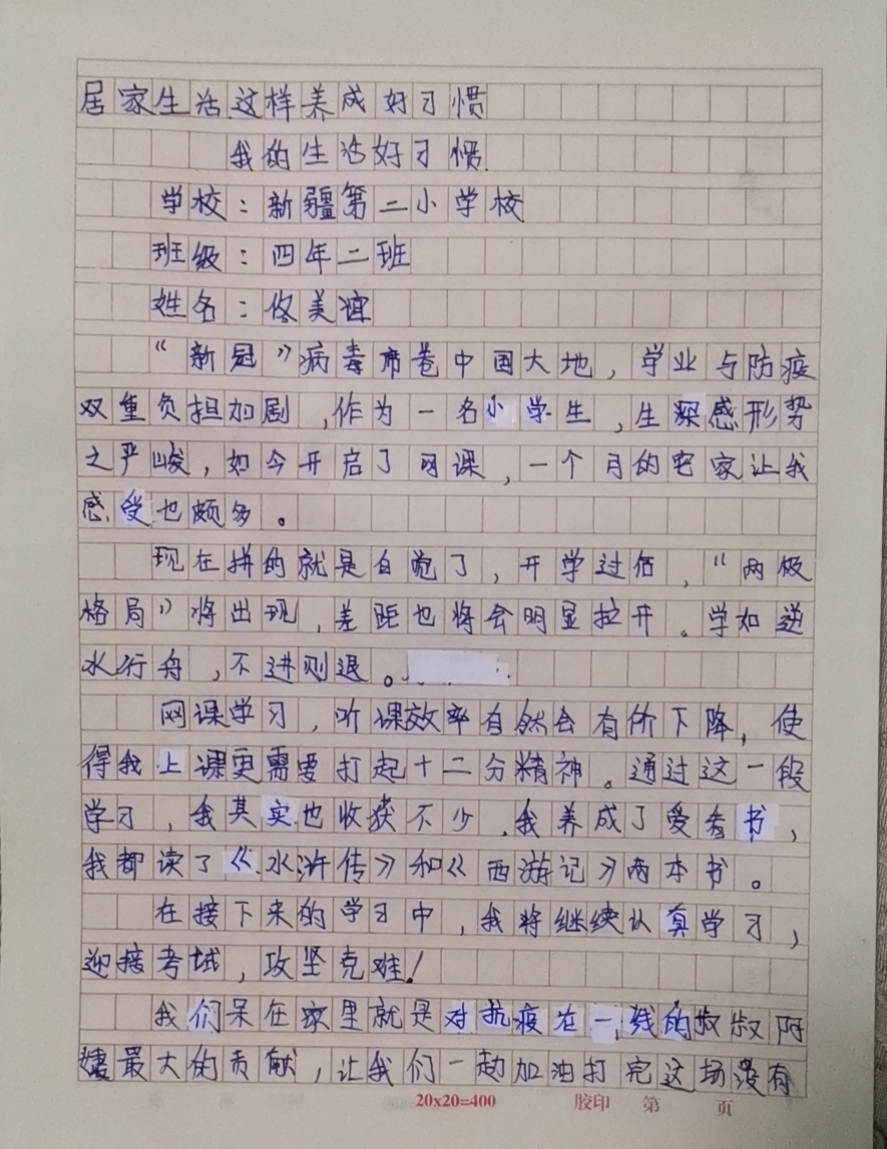 居家生活这样养成好习惯
我的生活好习惯
学校：新疆第二小学校
班级：四年二班
姓名：佟美谊
“新冠”病毒席卷中国大地，学业与防疫
双重负担加剧，作为一名小学生，生深感形势
之严峻，如今开启了网课，一个月的宅家让我
感受也颇多。
现在拼的就是自觉了，开学过后，“两极
格局”将出现，差距也将会明显拉开。学如逆
水行舟，不进则退。
网课学习，听课效率自然会有所下降，使
得我上课更需要打起十二分精神。通过这一段
学习，我其实也收获不少.我养成了爱看书，
我都读了《水浒传》和《西游记》两本书。
在接下来的学习中，我将继续认真学习，
迎接考试，攻坚克难！
我们呆在家里就是对抗疫在一线的叔叔阿
姨最大的贡献，让我们一起加油打完这场没有
20x20=400 胶印 第 页